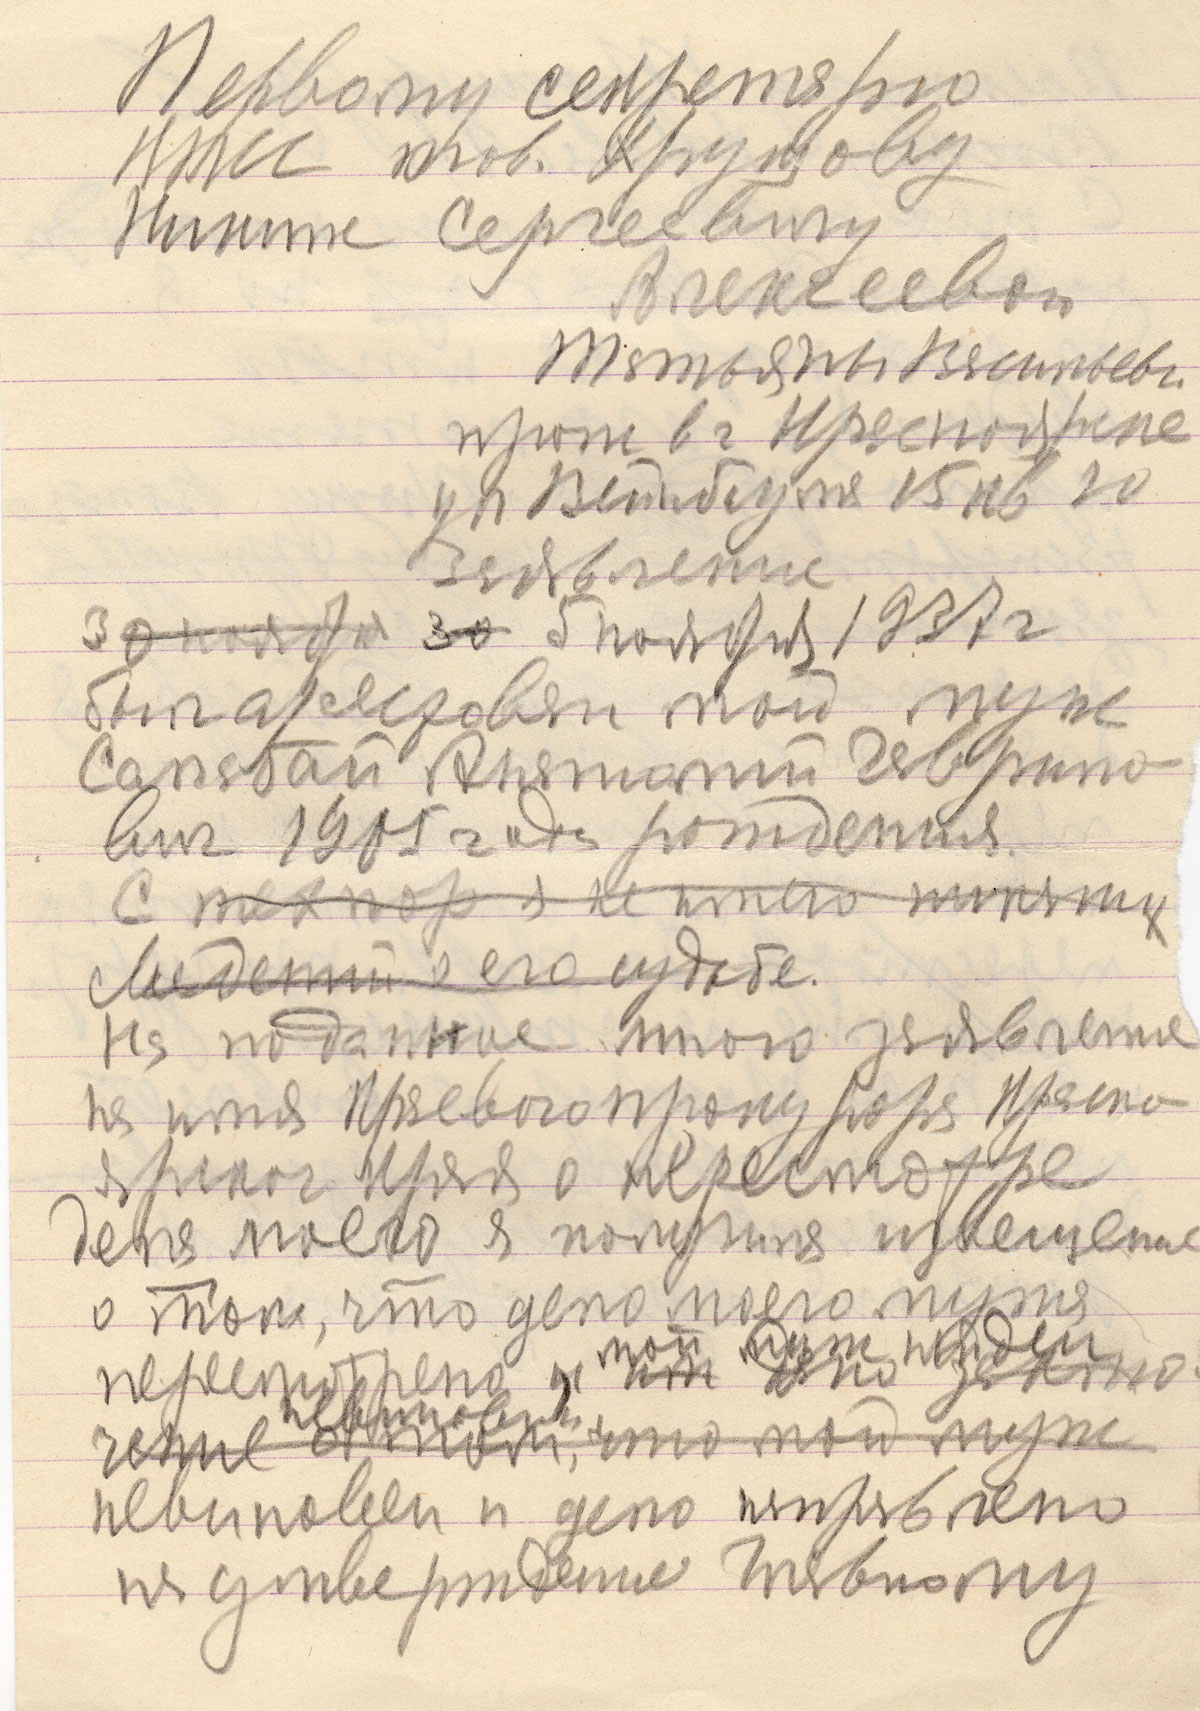 Первому секретарю
КПСС тов. Хрущову
Никите Сергеевичу
Алексеевой
Татьяны Васильевн
прож в г Красноярске
ул Вейнбаума 15 кв 20
Заявление
30 ноября 30 6 ноября 1937 г
был арестован мой муж
Анатолий Гаврило
вич 1905 года рождения.
С тех пор я не имею никаких
сведений о его судьбе.
На поданное мною заявление
на имя Краевого прокурора Красно
ярског края о пересмотре
дела моего я получила извещение
о том, что дело моего мужа
мой муж найден
пересмотрено и дано заклю
невиновн
чение о том, что мой муж
невиновен и дело направлено
на утверждение Главному